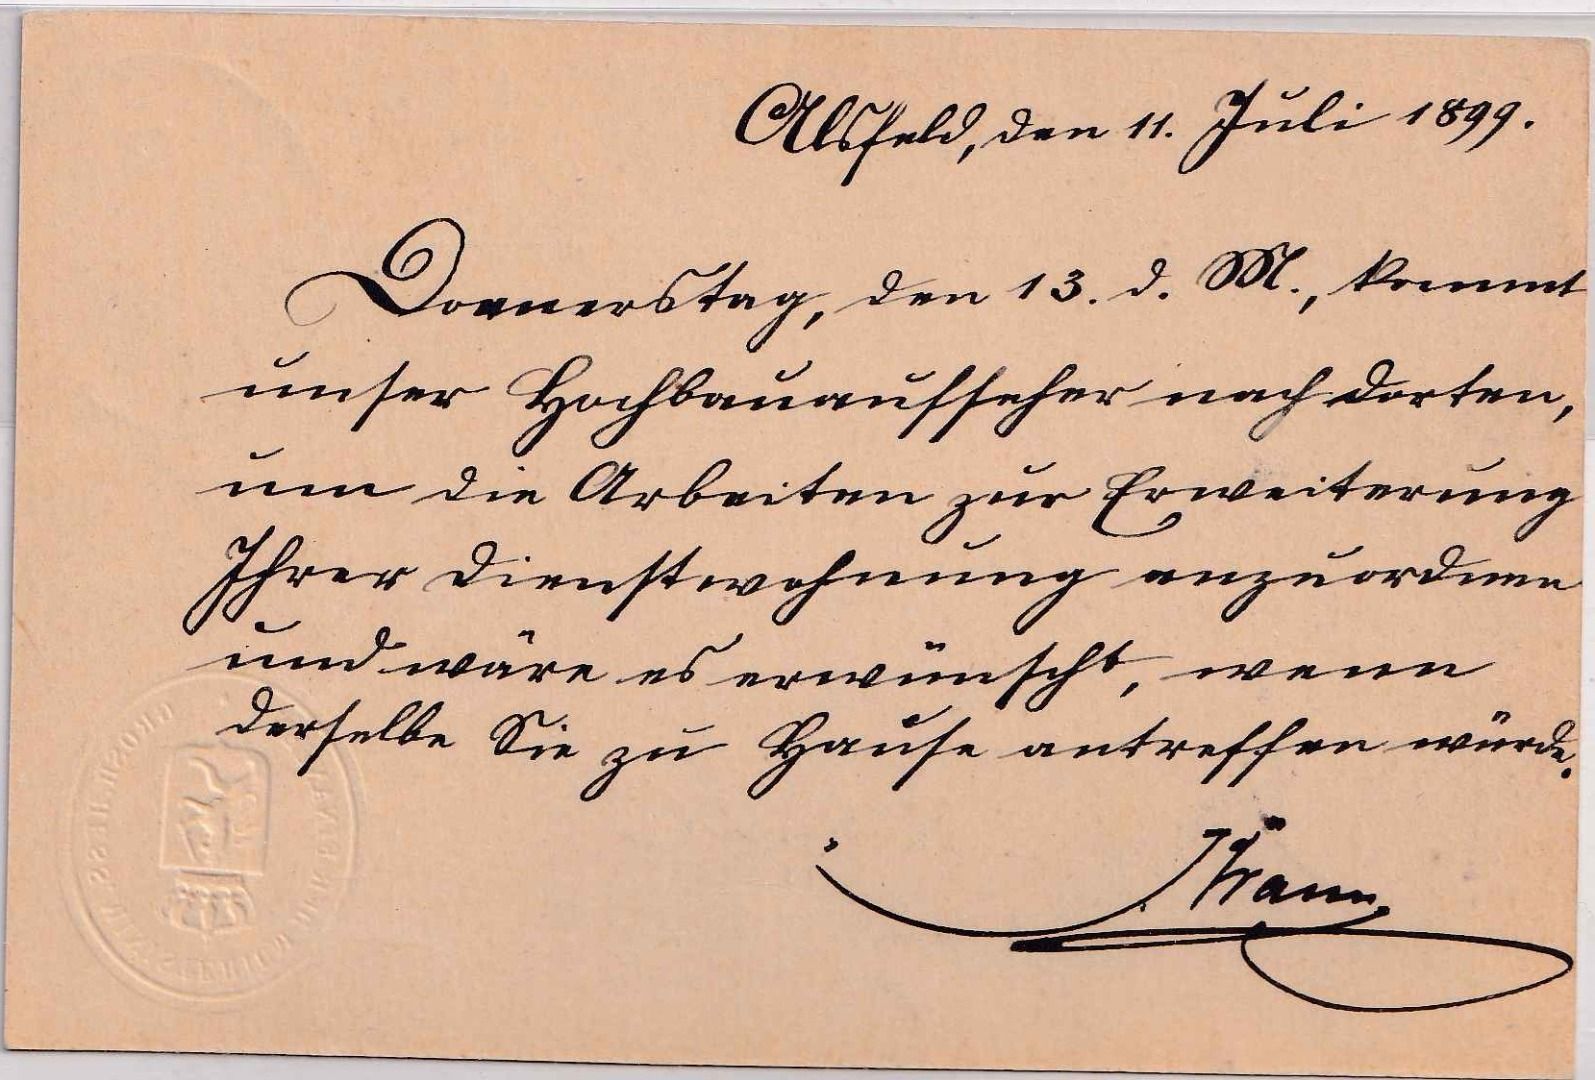 Alsfeld, den 11. Juli 1899.
Donnerstag, den 13. d. M., kommt
unser Hochbauaufseher nach dorten,
um die Arbeiten zur Erweiterung
Ihrer Dienstwohnung anzuordnen
und wäre es erwünscht, wenn
derselbe Sie zu Hause antreffen würde.